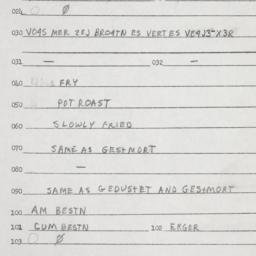 024 Ø
030 VOGS MER ZEJ BROATN ES VERTES
031 — 032 —
040 FRY
050 POT ROAST
060 SLOWLY FRIED
070 SAME AS GESHMORT
080 —
090 SAME AS GEDUSTET AND GESHMORT
100 AM BESTN
101 CUM BESTN 102 ERGER
103 Ø